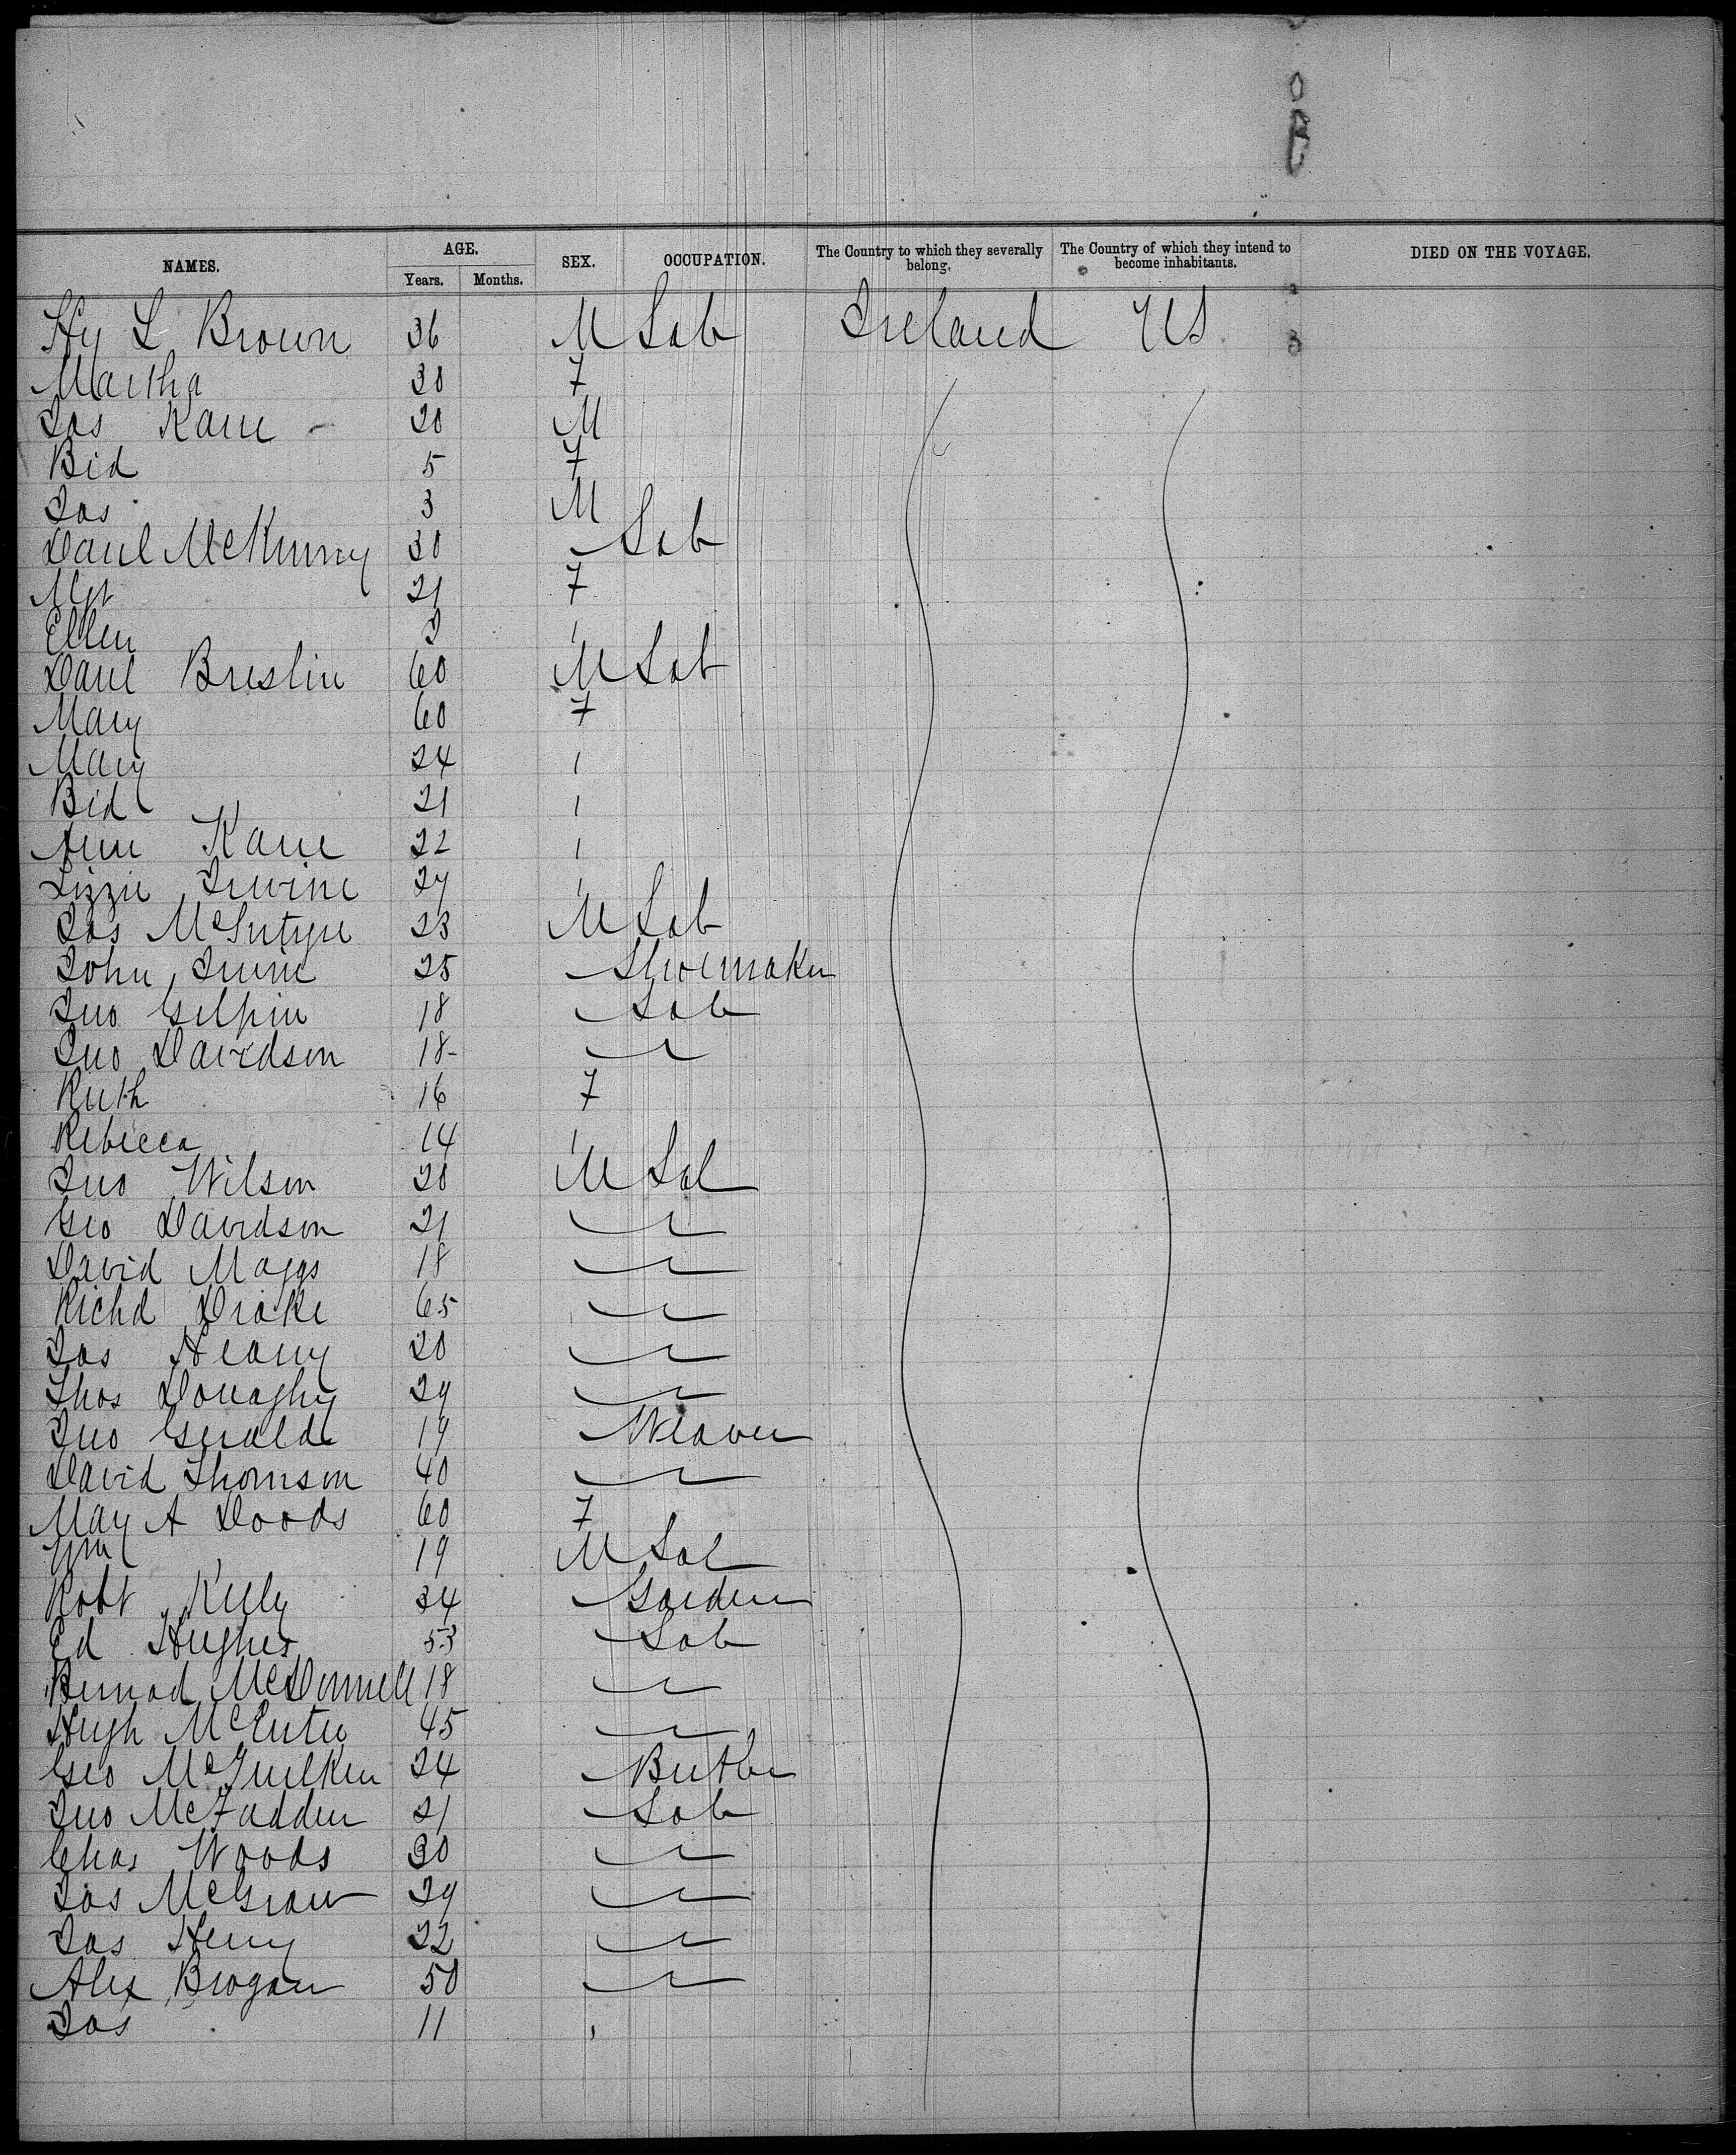 NAMES. AGE. SEX. OCCUPATION. The Country to which they severally belong. The Country of which they intend to become inhabitants. DIED ON THE VOYAGE.
Years. Months.
Hy L Brown 36 M Lab Ireland US
Martha 30 F
Jas Kane 20 M
Bid 5 F
Jas 3 M
Danl McKinney 30 Lab
Mgt 21 F
Ellen 2
Danl Breslin 60 M Lab
Mary 60 F
Mary 24
Bid 21
Ann Kane 22
Lizzie Irvine 24
Jas McIntyre 23 M Lab
John Irvine 25 Shoemaker
Jno Gilpin 18 Lab
Jno Davidson 18
Ruth 16 F
Rebecca 14
Jno Wilson 20 M Lab
Geo Davidson 21
David Maggs 18
Richd Drake 65
Jas Heany 20
Thos Donaghy 29
Jno Gerald 19 Weaver
David Thomson 40
Mary A Doods 60 F
Wm 19 M Lab
Robt Kelly 34 Garden
Ed Hughes 53 Lab
Bernard McDonnell 18
Hugh McEntee 45
Geo McQuilken 24 Butler
Jno McFadden 21 Lab
Chas Woods 30
Jas McGraw 29
Jas Henry 22
Alex Brogan 50
Jas 11